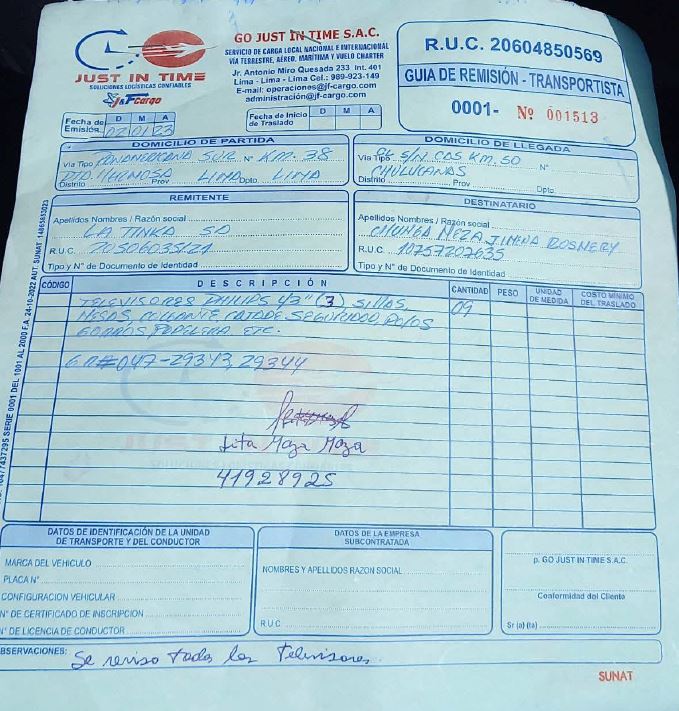 JUST IN TIME
SOLUCIONES LOGÍSTICAS CONFIABLES
J&F Cargo
GO JUST IN TIME S.A.C.
SERVICIO DE CARGA LOCAL NACIONAL E INTERNACIONAL
VIA TERRESTRE, AÉREO, MARÍTIMA Y VUELO CHARTER
Jr. Antonio Miro Quesada 233 Int. 401
Lima - Lima - Lima Cel.: 989-923-149
E-mail: operaciones@jf-cargo.com
administración@jf-cargo.com
R.U.C. 20604850569
GUIA DE REMISIÓN - TRANSPORTISTA
0001- Nº 001513
Fecha de Emisión D M A
02 01 23
Fecha de Inicio de Traslado D M A
DOMICILIO DE PARTIDA
Vía Tipo PANAMERICANA SUR Nº KM. 38
Distrito PTO. HERMOSA Prov LIMA Dpto. LIMA
DOMICILIO DE LLEGADA
Vía Tipo S/N CAS KM. 50 Nº
Distrito CHULUCANAS Prov Dpto.
REMITENTE
Apellidos Nombres / Razón social
LA TINKA SA
R.U.C. 20506035121
Tipo y N° de Documento de Identidad
DESTINATARIO
Apellidos Nombres / Razón social
CHUNGA MEZA JIMENA ROSMERY
R.U.C. 10757207635
Tipo y N° de Documento de Identidad
CÓDIGO DESCRIPCIÓN CANTIDAD PESO UNIDAD DE MEDIDA COSTO MINIMO DEL TRASLADO
TELEVISORES PHILIPS 43" (3) SILLAS 09
MESAS, SEGURIDAD, POLOS
GORROS PAPELERA ETC.
G.R# 047-29343, 29344
Lita Meza Meza
41928925
DATOS DE IDENTIFICACIÓN DE LA UNIDAD DE TRANSPORTE Y DEL CONDUCTOR
MARCA DEL VEHICULO
PLACA Nº
CONFIGURACION VEHICULAR
N° DE CERTIFICADO DE INSCRIPCION
N° DE LICENCIA DE CONDUCTOR
DATOS DE LA EMPRESA SUBCONTRATADA
NOMBRES Y APELLIDOS RAZON SOCIAL
R.U.C.
p. GO JUST IN TIME S.A.C.
Conformidad del Cliente
Sr (a) (ta)
OBSERVACIONES: Se reviso todo los Televisores.
SUNAT